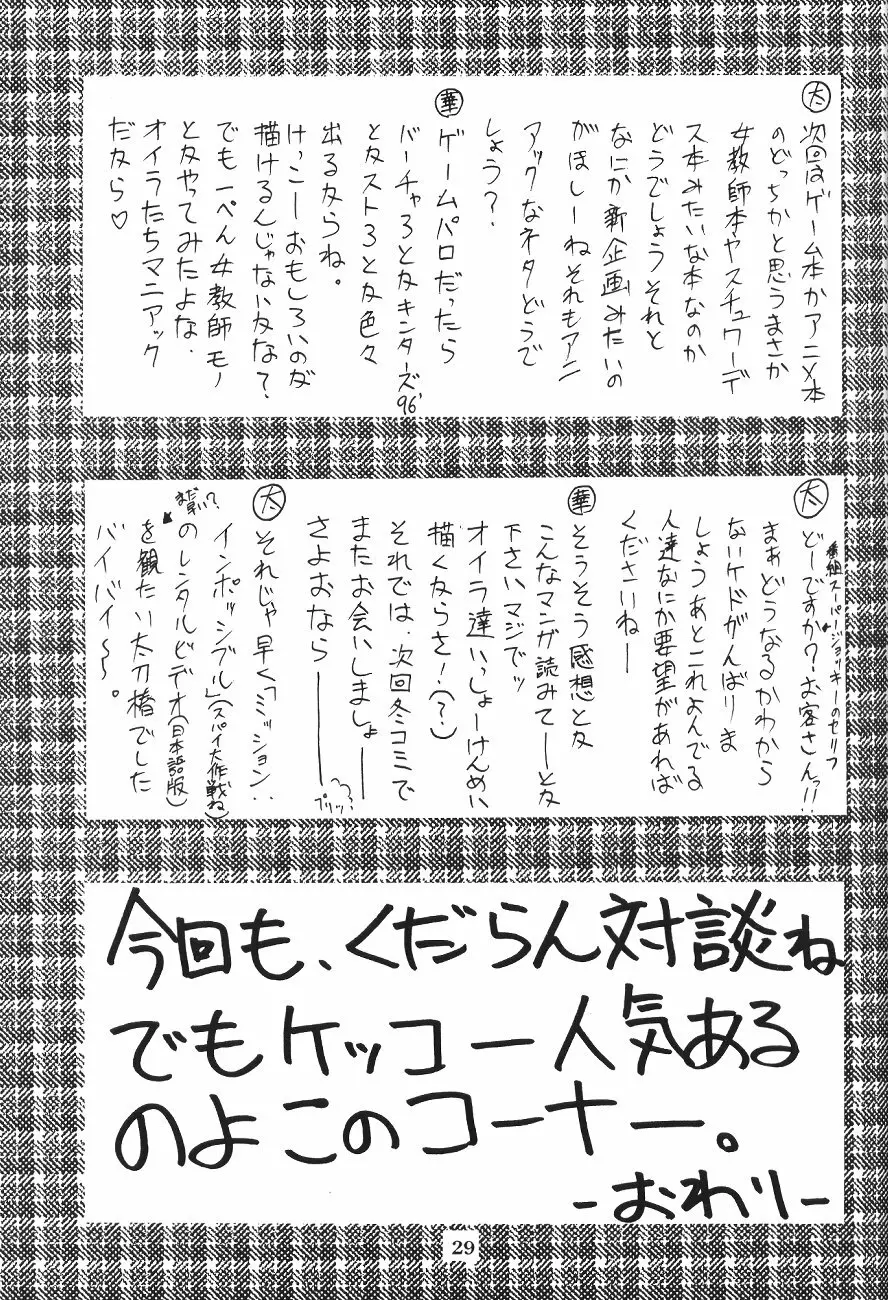 太
次回はゲーム本かアニメ本
のどっちかと思うまさか
女教師本やスチュワーデ
ス本みたいな本なのか
どうでしょうそれと
なにか新企画みたいの
がほしーねそれもアニ
アックなネタどうで
しょう?
華
ゲームパロだったら
バーチャ3とかキンターズ96'
とかスト3とか色々
出るからね。
けっこーおもしろいのが
描けるんじゃないかな?
でも一ぺん女教師モノ
とかやってみたよな.
オイラたちマニアック
だから♡
太
どーですか?お客さんっ!!
番組スーパージョッキーのセリフ
まぁどうなるかわから
ないケドがんばりま
しょうあとこれよんでる
人達なにか要望があれば
くださいねー
華
そうそう感想とか
こんなマンガ読みてーーとか
下さいマジでッ
オイラ達いっしょーけんめい
描くからさ!(?)
それでは、次回冬コミで
またお会いしましょーー
さよおならーーー
プリッ?
太
それじゃ早く「ミッション:
インポッシブル」(スパイ大作戦ね)
のレンタルビデオ(日本語版)
まだ早い?
を観たい太刀椿でした
バイバイ〜。
今回も、くだらん対談ね
でもケッコー人気ある
のよこのコーナー。
-おわり-
29